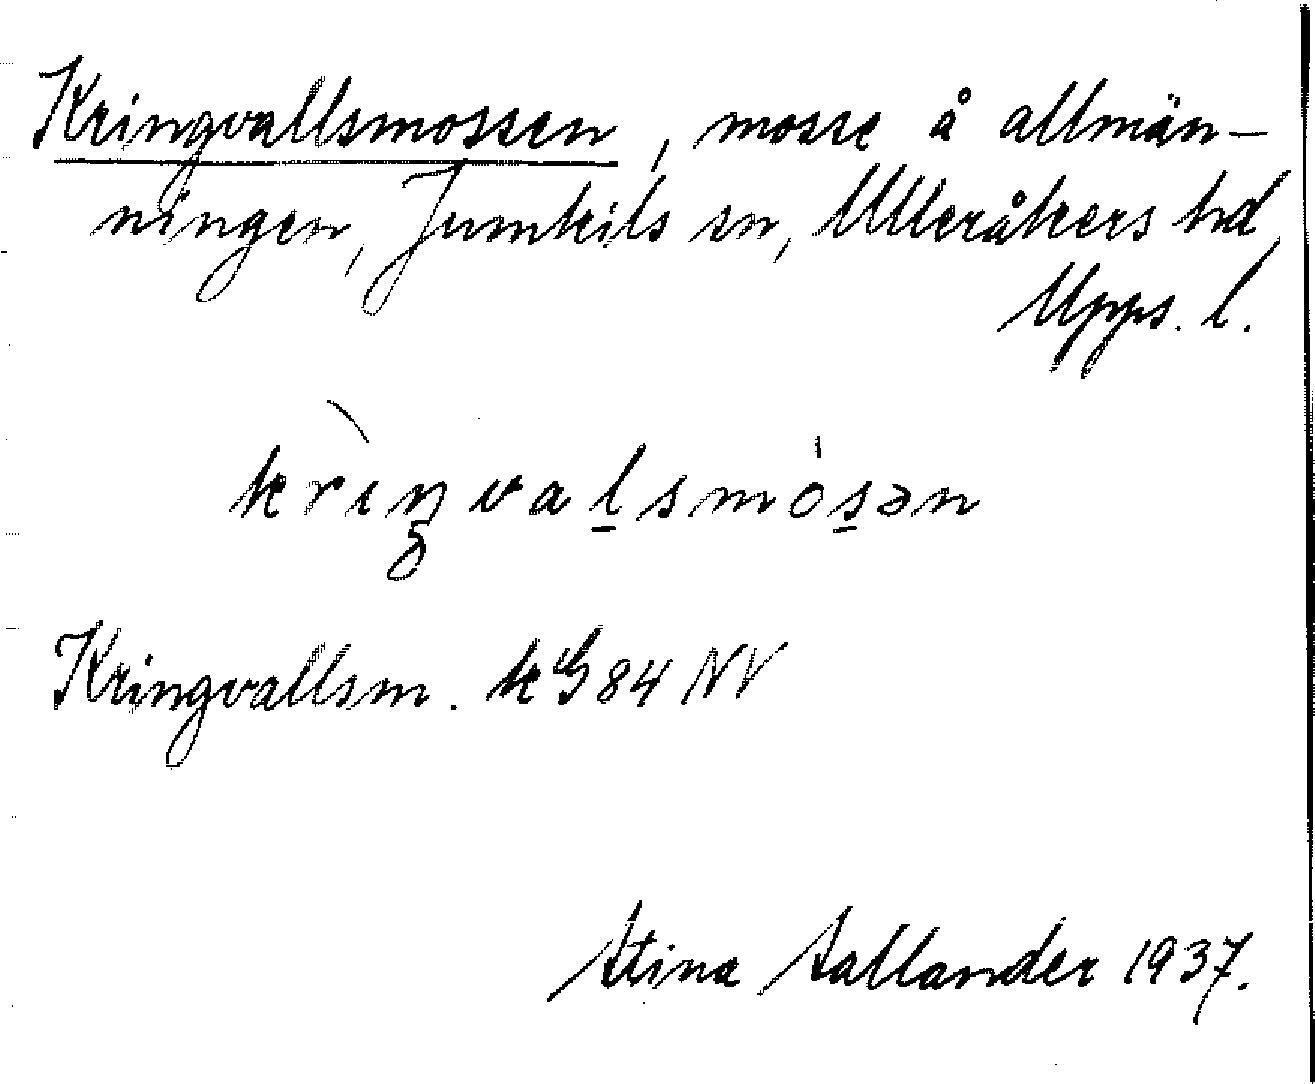 Kringvallsmossen, mosse å allmän-
ningen, Jumkils sn, Ulleråkers hd,
Upps. l.
krìŋval̲smós̲ən
Kringvallsm. k G 84 NV
Stina Sallander 1937.